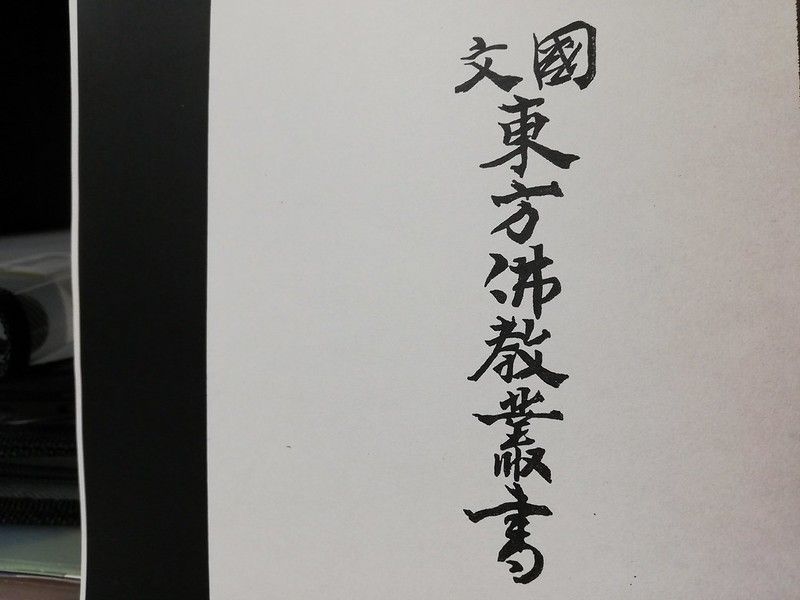 國文
東方佛教叢書